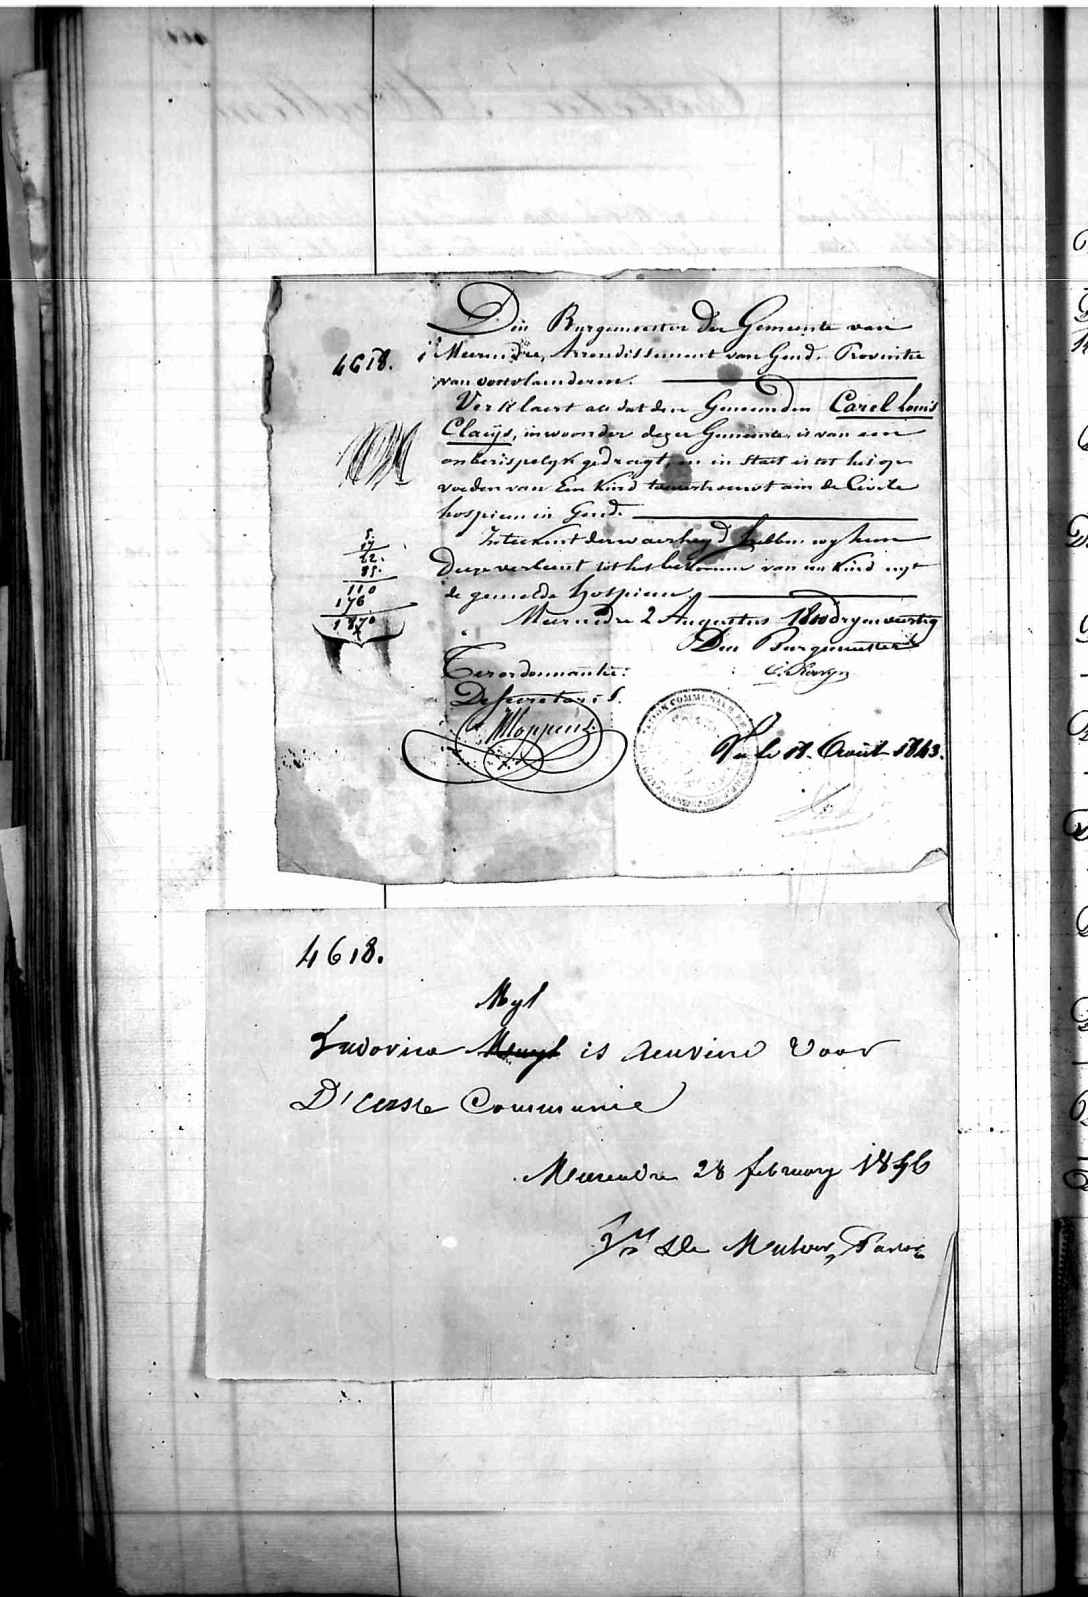 4618.
Den Burgemeester der Gemeente van
Meerendre, Arrondissement van Gend. Provintie
van oostvlaenderen.
Verklaert als dat den Genaemden Carel Louis
Claeijs, inwoonder dezer Gemeente, is van een
onberispelyk gedragt, en in staet is tot het op
voeden van Een Kind toevertrouwt ain de Civile
hospicien in Gend.
In teekent der waerheyd hebben wy hem
Deeze verleent tot het bekomen van een Kind uyt
de gemelde hospicien.
Meerendre 2 Augustus 1800 dryenveertig
Den Burgemeester
Ter ordonnantie:
De Secretaris.
5.
17
22.
85.
110
176
1870
Vu le 18. Août 1843.
4618.
Myl
Ludovica is aenveird voor
D'eerste Communie
Meerendre 28 february 1856
De Mulder, Pastor